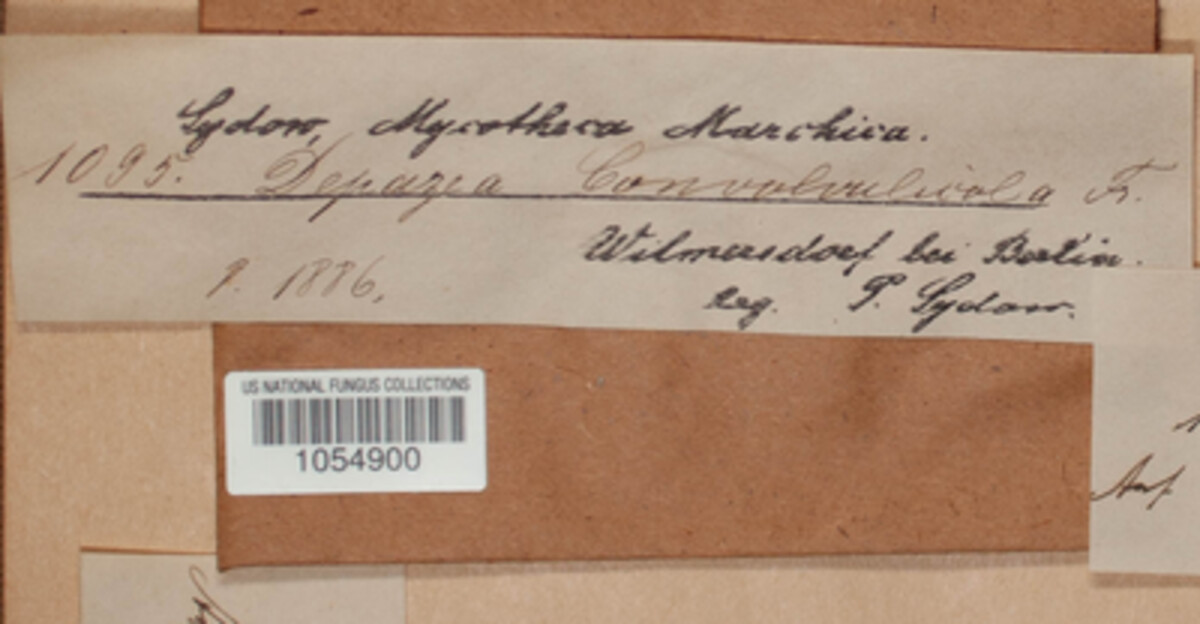 Sydow, Mycotheca Marchica.
1095. Depazea Convolvulicola Fr.
Wilmersdorf bei Berlin.
9. 1886.
leg. P. Sydow.
US NATIONAL FUNGUS COLLECTIONS
1054900
Auf